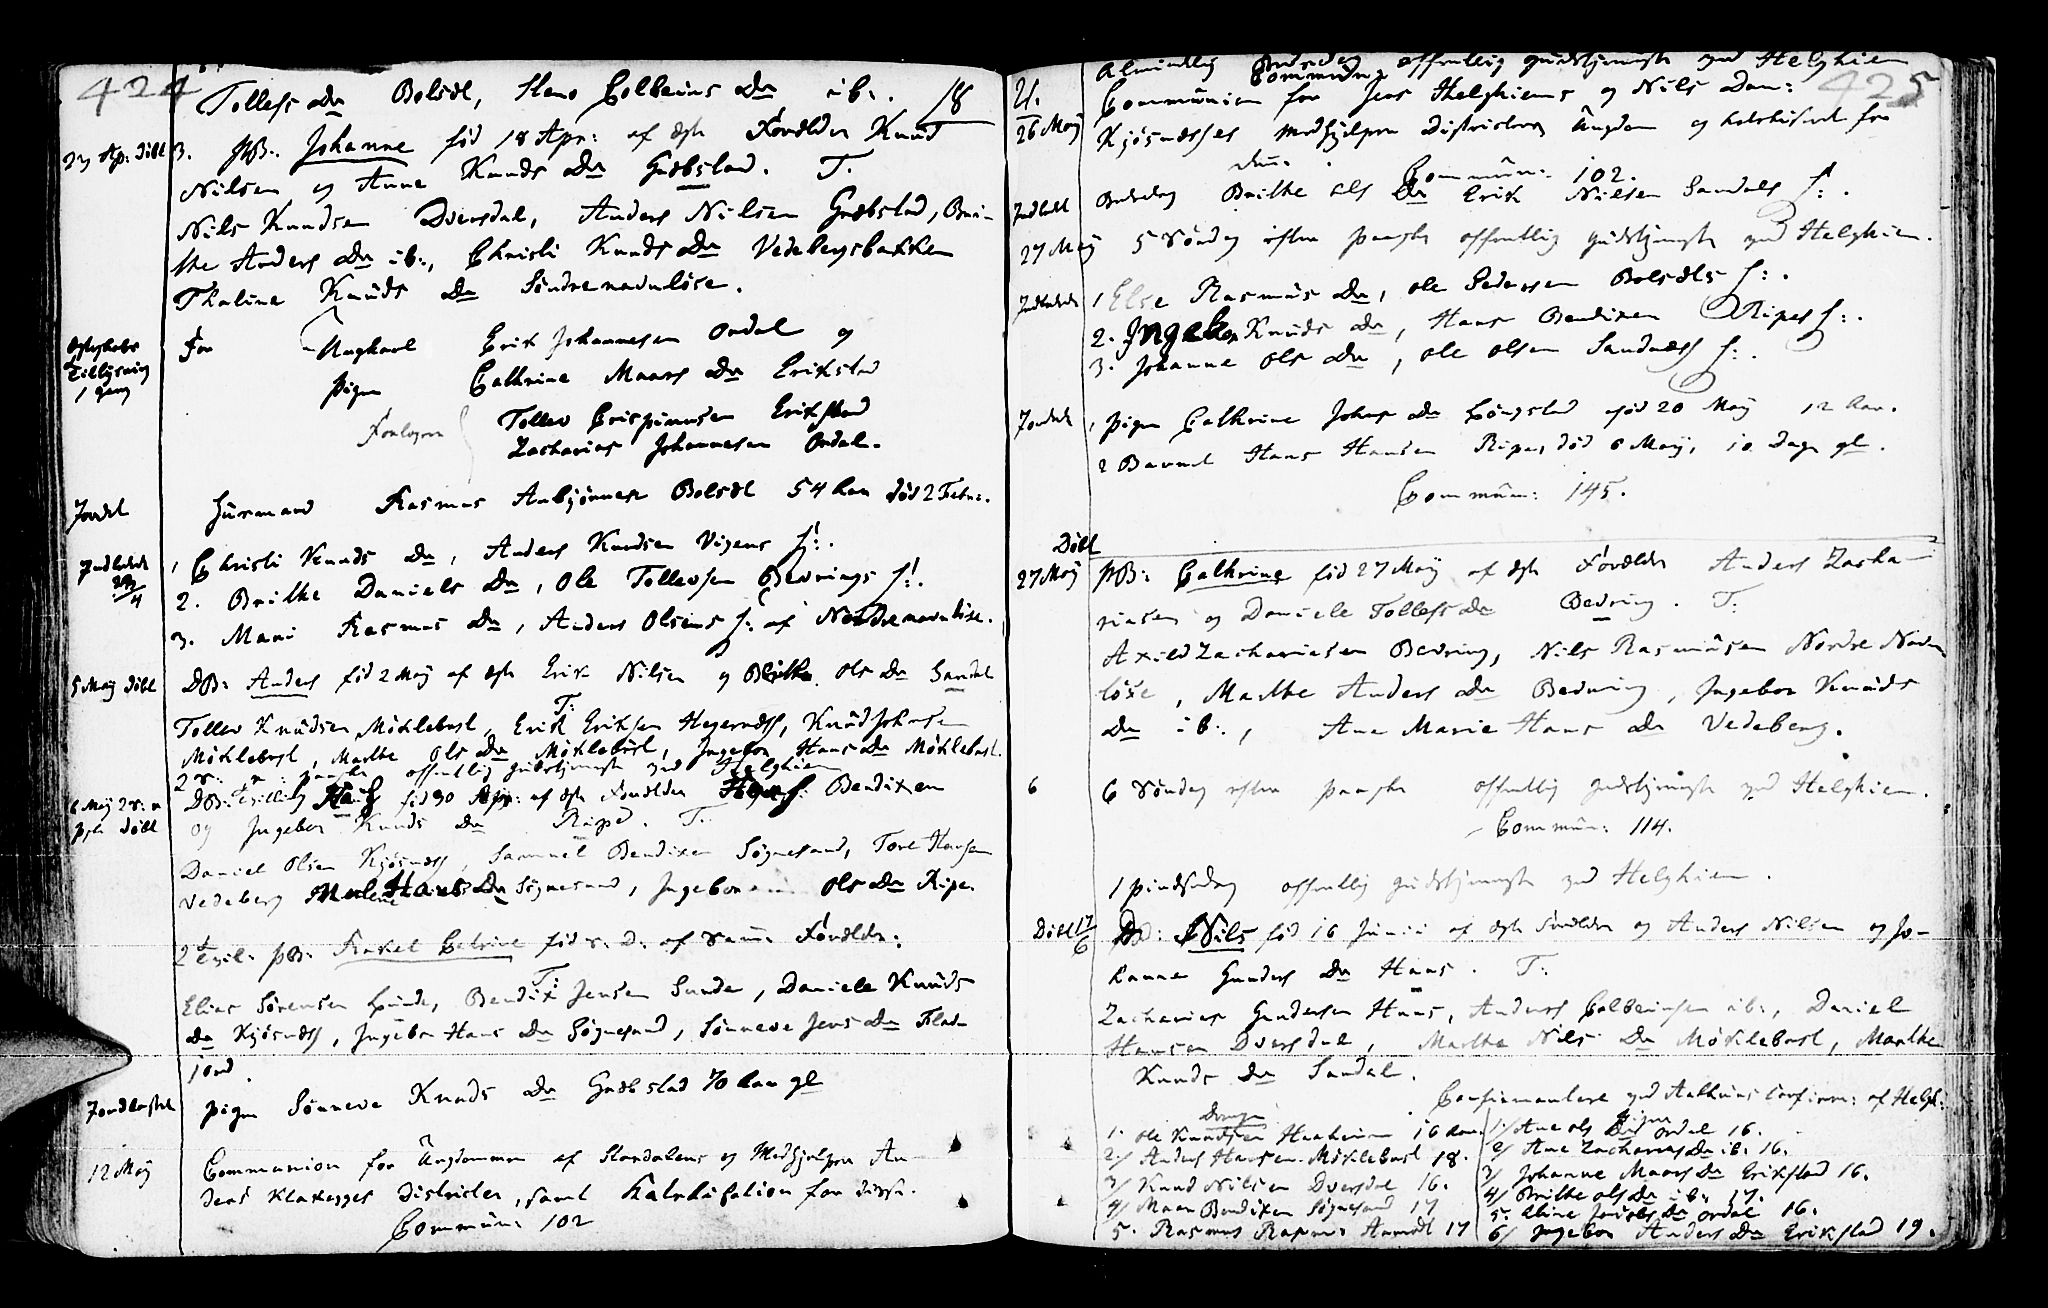 424
Tollefs Dr Bolsæt, Hans Colbeins Dr ib:. 18
29 Ap: Döbt 3. PB: Johanne föd 18 Apr: af ægte Forældre Knud
Nilsen og Anne Knuds Dr Græbstad. T.
Nils Knudsen Dvergsdal, Anders Nilsen Græbstad, Bri-
the Anders Dr ib:, Christi Knuds Dr Vedebergsbakken
Thaline Knuds Dr Söndrenavnlöse.
Ægteskabs Tillysning 1 gang
For Ungkarl Erik Johannesen Ordal og
Pigen Cathrine Maars Dr Erikstad
Forlovere Tollev Crispinusen Erikstad
Zacharias Johannesen Ordal.
Jordet Huusmand Rasmus Anbjörnsen Bolsæt 54 Aar död 2 Febr:.
Indledede 29/4
1 Christi Knuds Dr, Anders Knudsen Vigens H:.
2. Brithe Daniels Dr, Ole Tollevsen Bedrings H:.
3. Mari Rasmus Dr, Anders Olsens H: af Nordrenavnlöse.
5 Maij Döbt DB: Anders föd 2 Maij af ægte Erik Nilsen og Brithe Ols Dr Sandal
T:
Tollev Knudsen Möklebust, Erik Eriksen Hegrenæss, Knud Johnsen
Möklebust, Marthe Ols Dr Möklebust, Ingebor Hans Dr Möklebust.
offentlig gudstjeneste ved Helghiem
6 Maij Döbt DB: Tvilling Hans föd 30 Apr: af ægte Forældre Bendixen
og Ingebor Knuds Dr Ripe. T:
Daniel Olsen Kjösnæss, Samuel Bendixen Sögnesand, Tore Hansen
Vedeberg Hans Dr Sögnesand, Ingebor Ols Dr Ripe.
2d Tvil: PB: Rakel Celrine föd s. D. af samme Forældre.
T:
Elias Sörensen Hunde, Bendix Jensen Sunde, Daniele Knuds
Dr Kjösnæss, Ingebor Hans Dr Sögnesand, Sönneve Jens Dr Flad-
jord.
Jordfæstet Pigen Sönneve Knuds Dr Græbstad 70 Aar gl
12 Maij Communion for Ungdommen af Stardalens og Medhjelper An-
ders Klakeggs Districter, samt Katekisation for disse.
Commün: 102
425
Almindelig Bededag offentlig gudstjeneste ved Helghiem
U.
26 Maij Communion for Jens Helghiems og Nils Dan:
Kjösnæsses medhjelper Districters Ungdom og katekiseret for
dem. Commün: 102.
Indledet Bededag Brithe Ols Dr Erik Nilsen Sandals H:.
27 Maij 5 Söndag efter Paaske offentlig gudstjeneste ved Helghiem.
Indledede 1 Else Rasmus Dr, Ole Pedersen Bolsæts H:.
2. Ingebor Knuds Dr, Hans Bendixen Ripes H:.
3. Johanne Ols Dr, Ole Olsen Sandnæss H:.
Jordede 1 Pigen Cathrine Johns Dr död 20 Maij 12 Aar.
2 Barnet Hans Hansen Ripe, död 6 Maij, 10 Dage gl.
Commün: 145.
Döbt
27 Maij PB: Cathrine föd 27 Maij af ægte Forældre Anders Zacha-
riasen og Daniele Tollefs Dr Bedring. T:
Axild Zachariasen Bedring, Nils Rasmusen Nordre Navn-
löse, Marthe Anders Dr Bedring, Ingebor Knuds
Dr ib:, Ane Marie Hans Dr Vedeberg.
6 6 Söndag efter Paaske offentlig gudstjeneste ved Helghiem.
Commün: 114.
1 Pindsedag offentlig gudstjeneste ved Helghiem.
Döbt 17/6 DB: Nils föd 16 Junii af ægte Forældre og Anders Nilsen og Jo-
hanne Gunders Dr Haus. T:
Zacharias Gundersen Haus, Anders Colbeinsen ib:, Daniel
Hansen Dvergsdal, Marthe Nils Dr Möklebust, Marthe
Knuds Dr Sandal.
Confirmantere ved Aalhuus Confirm: af Helgh:
Drenge
1. Ole Knudsen Haaheim 16 Aar.
2/ Anders Hansen Möklebust 18.
3/ Knud Nilsen Dvergsdal 16.
4/ Maar Bendixen Sögnesand 17
5. Rasmus Rasmus Aamodt 17
Piger
1/ Ane Ols Dr Ordal 16.
2/ Ane Zacharias Dr ib: 16.
3/ Johanne Maars Dr Erikstad 16.
4/ Brithe Ols Dr ib: 17.
5. Aline Jacobs Dr Ordal 16.
6/ Ingebor Anders Dr Erikstad 19.